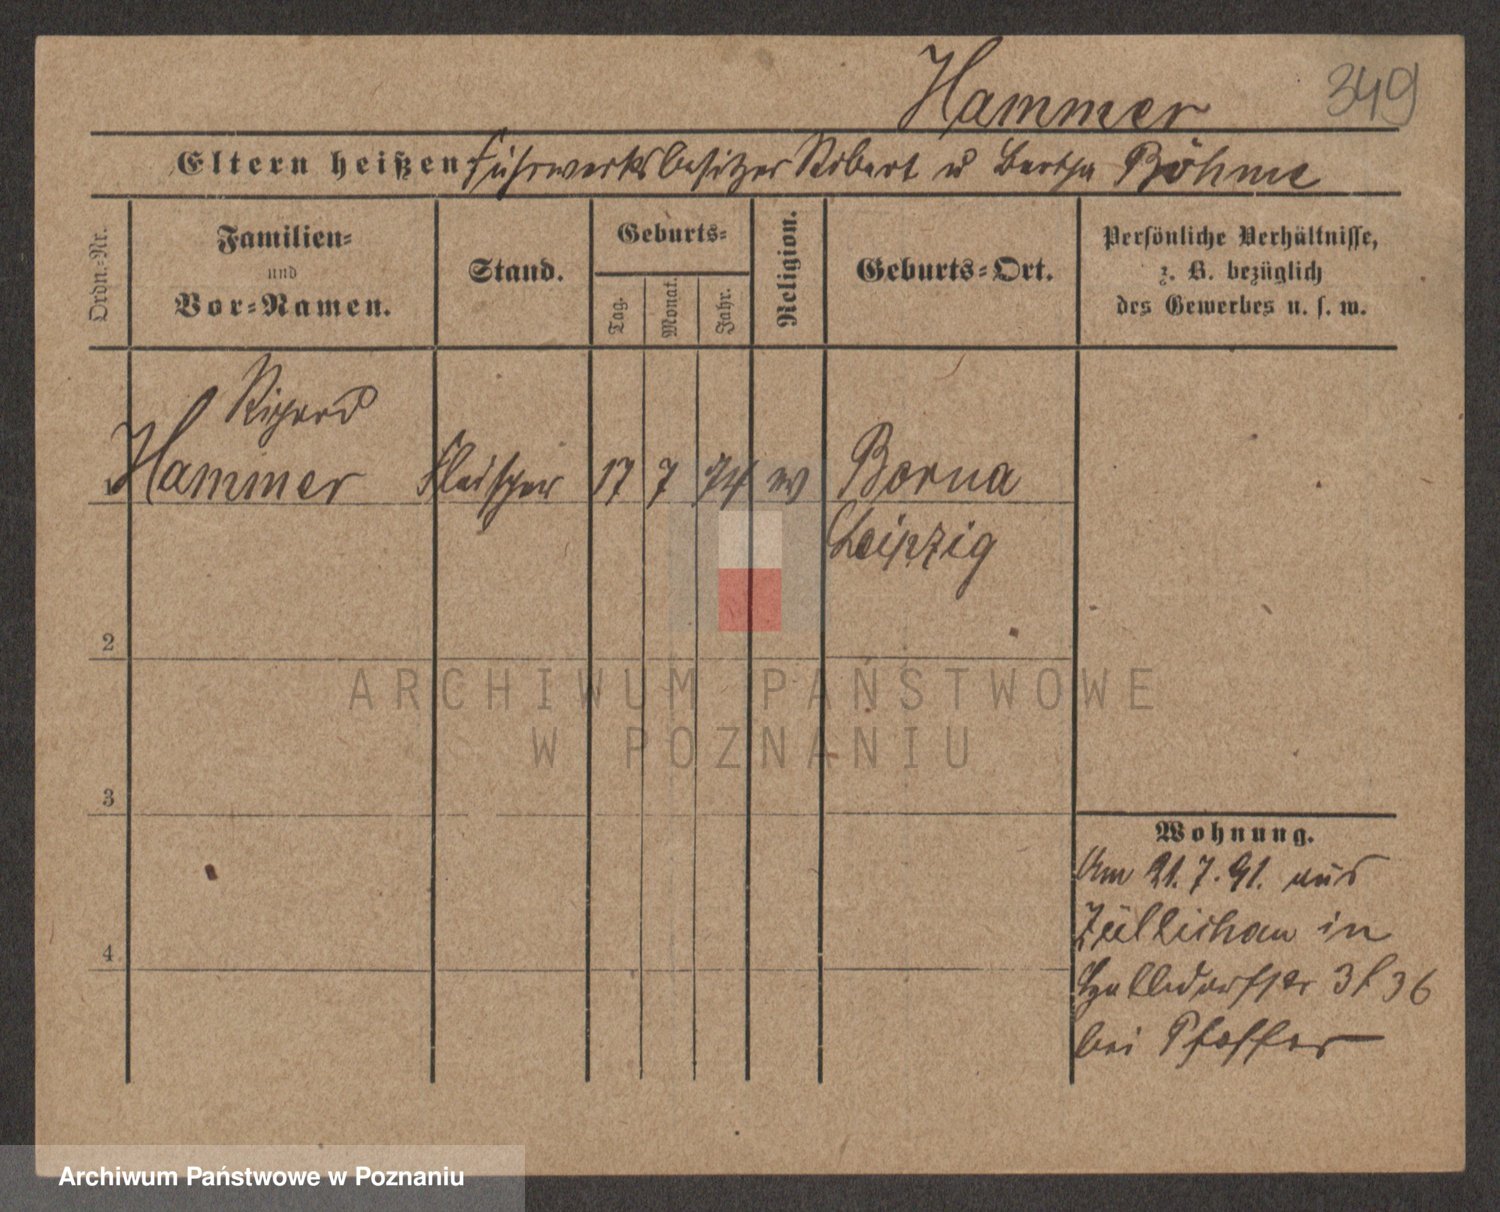 Hammer
349
Eltern heißen: Fuhrwerksbesitzer Robert u Bertha Böhme
Ordn.-Nr.
Familien- und Vor-Namen.
Stand.
Geburts-
Tag.
Monat.
Jahr.
Religion.
Geburts-Ort.
Persönliche Verhältnisse,
z. B. bezüglich
des Gewerbes u. s. w.
Richard
1 Hammer Fleischer 17 7 74 w Borna
Leipzig
2
ARCHIWUM PAŃSTWOWE
W POZNANIU
3
Wohnung.
Am 21.7.91. aus
Züllichau in
4
36
bei Pfeffer
Archiwum Państwowe w Poznaniu